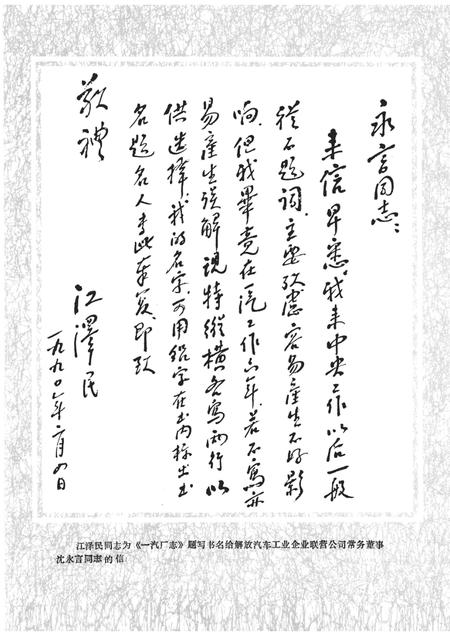 永言同志：
来信早悉。我来中央工作以后一般
从不题词。主要考虑容易产生不好影
响。但我畢竟在一汽工作六年，若不寫亦
易產生误解，现特縱横各寫两行以
供选擇。我的名字可用铅字在书内标出书
名题名人。专此奉复。即致
敬禮
江澤民
一九九〇年二月四日
江泽民同志为《一汽厂志》题写书名给解放汽车工业企业联营公司常务董事
沈永言同志的信